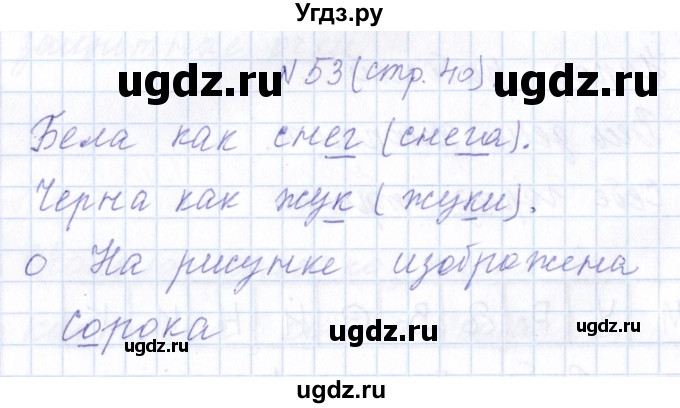 Угдз.ру
ugdz.ru ugdz.ru
№ 53 (стр. 40)
Бела как снег (снега).
Черна как жук (жуки).
о На рисунке изображена
сорока
ugdz.ru ugdz.ru ugdz.ru
ugdz.ru